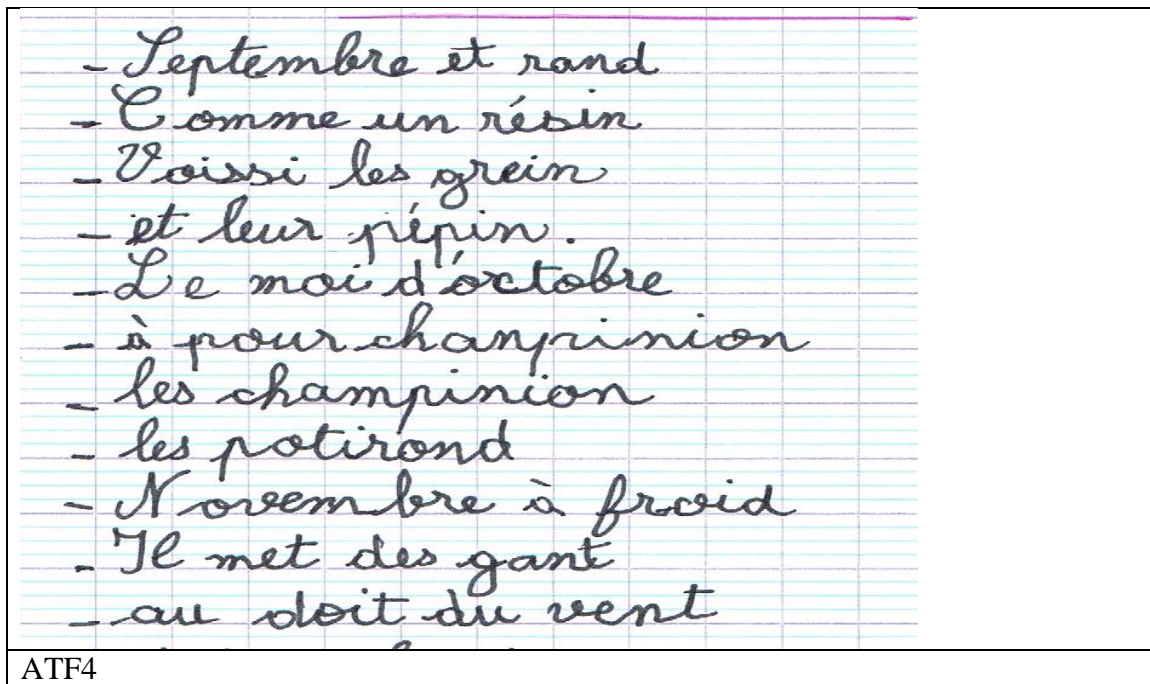 - Septembre et rond
- Comme un résin
- Voissi les grein
- et leur pépin.
- Le moi d'octobre
- à pour chanpinion
- les champinion
- les potirond
- Novembre à froid
- Il met des gant
- au doit du vent
ATF4